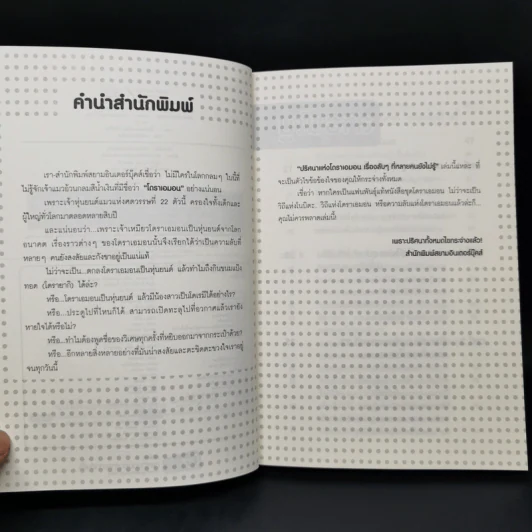 คำนำสำนักพิมพ์
เรา-สำนักพิมพ์สยามอินเตอร์บุ๊คส์เชื่อว่า ไม่มีใครในโลกกลมๆ ใบนี้ที่
ไม่รู้จักเจ้าแมวอ้วนกลมสีน้ำเงินที่มีชื่อว่า "โดราเอมอน" อย่างแน่นอน
เพราะเจ้าหุ่นยนต์แมวแห่งศตวรรษที่ 22 ตัวนี้ ครองใจทั้งเด็กและ
ผู้ใหญ่ทั่วโลกมาตลอดหลายสิบปี
และแน่นอนว่า...เพราะเจ้าเหมียวโดราเอมอนเป็นหุ่นยนต์จากโลก
อนาคต เรื่องราวต่างๆ ของโดราเอมอนนั้นจึงเรียกได้ว่าเป็นความลับที่
หลายๆ คนยังสงสัยและกังขาอยู่เป็นแน่แท้
ไม่ว่าจะเป็น...ตกลงโดราเอมอนเป็นหุ่นยนต์ แล้วทำไมถึงกินขนมแป้ง
ทอด (โดรายากิ) ได้ล่ะ?
หรือ...โดราเอมอนเป็นหุ่นยนต์ แล้วมีน้องสาวเป็นโดเรมีได้อย่างไร?
หรือ...ประตูไปที่ไหนก็ได้ สามารถเปิดทะลุไปที่อวกาศแล้วเรายัง
หายใจได้หรือไม่?
หรือ...ทำไมต้องพูดชื่อของวิเศษทุกครั้งที่หยิบออกมาจากกระเป๋าด้วย?
หรือ...อีกหลายสิ่งหลายอย่างที่มันน่าสงสัยและตะขิดตะขวงใจเราอยู่
จนทุกวันนี้
"ปริศนาแห่งโดราเอมอน เรื่องลับๆ ที่หลายคนยังไม่รู้" เล่มนี้แหละ ที่
จะเป็นตัวไขข้อข้องใจของคุณให้กระจ่างทั้งหมด
เชื่อว่า หากใครเป็นแฟนพันธุ์แท้หนังสือชุดโดราเอมอน ไม่ว่าจะเป็น
วิถีแห่งโนบิตะ, วิถีแห่งโดราเอมอน หรือความลับแห่งโดราเอมอนแล้วล่ะก็...
คุณไม่ควรพลาดเล่มนี้!
เพราะปริศนาทั้งหมดไขกระจ่างแล้ว!
สำนักพิมพ์สยามอินเตอร์บุ๊คส์